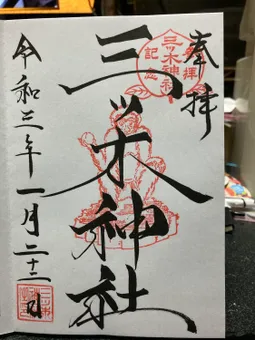 奉拝
三ツ木神社
参拝
三ツ木神社
記念
令和三年一月二十二日